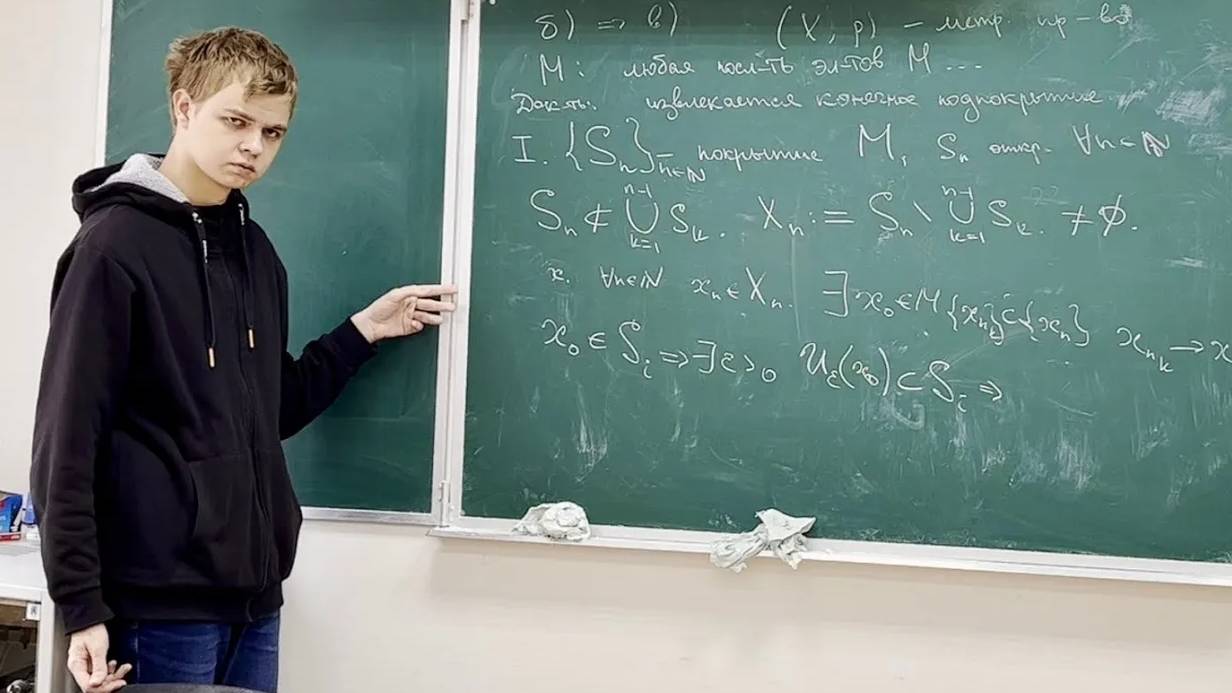 б) => в) (X, ρ) – метр. пр-во
M: любая посл-ть эл-тов M ...
Док-ть: извлекается конечное подпокрытие
I. {Sₙ}ₙ∈ℕ – покрытие M, Sₙ откр. ∀n∈ℕ
Sₙ ⊄ ⋃ₖ₌₁ⁿ⁻¹ Sₖ. Xₙ := Sₙ \ ⋃ₖ₌₁ⁿ⁻¹ Sₖ. ≠ ∅.
x. ∀n∈ℕ xₙ ∈ Xₙ. ∃ x₀ ∈ M {xₙₖ} ⊂ {xₙ} xₙₖ → x
x₀ ∈ Sᵢ => ∃ε>0 U_ε(x₀) ⊂ Sᵢ =>